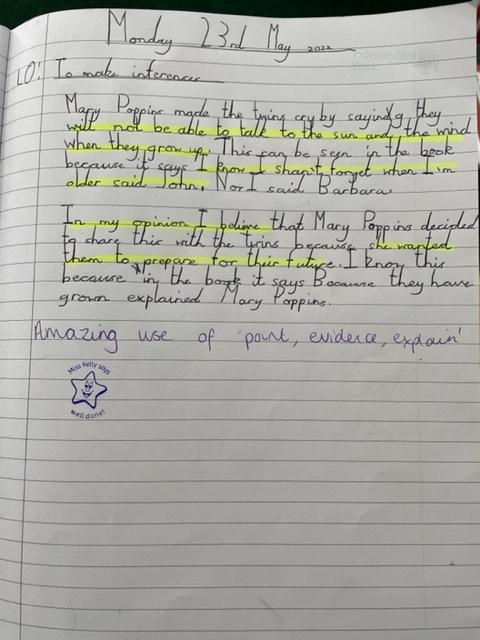 Monday 23rd May 2022
Independent
Work
LO: To make inferences
Mary Poppins made the twins cry by saying they
will not be able to talk to the sun and the wind
when they grow up. This can be seen in the book
because it says I know I shan't forget when I'm
older said John. Nor I said Barbara.
In my opinion I belive that Mary Poppins decided
to share this with the twins because she wanted
them to prepare for thier future. I know this
because in the book it says Because they have
grown explained Mary Poppins.
Amazing use of 'point, evidence, explain'
Miss Kelly says
well done!